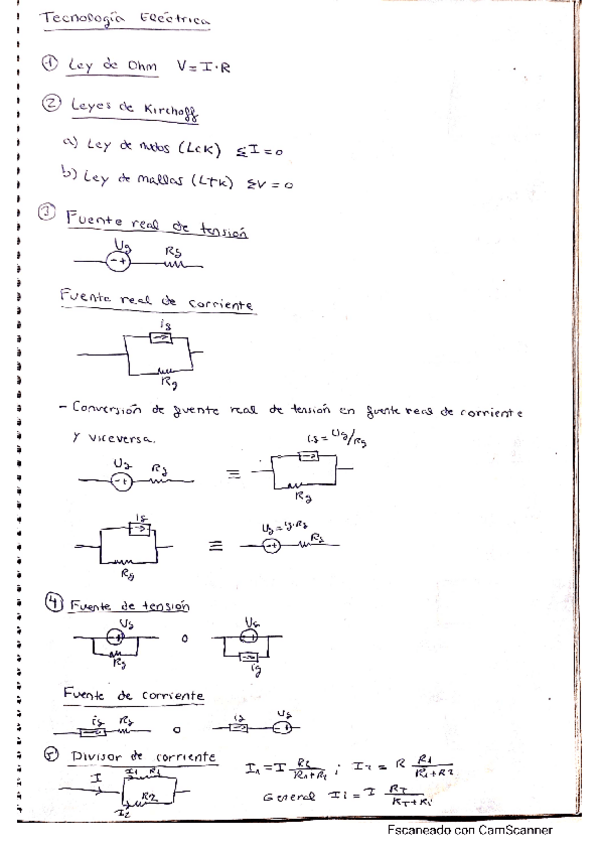 Tecnología Eléctrica
① Ley de Ohm V = I·R
② Leyes de Kirchoff
a) Ley de nudos (LCK) ΣI = 0
b) Ley de mallas (LTK) ΣV = 0
③ Fuente real de tensión
Ug Rg
Fuente real de corriente
ig
Rg
- Conversión de fuente real de tensión en fuente real de corriente
y viceversa.
ig = Ug/Rg
Ug Rg ≡
Rg
ig
Ug = ig·Rg
≡ Rg
Rg
④ Fuente de tensión
Ug o Ug
Rg ig
Fuente de corriente
ig Rg o ig Ug
⑤ Divisor de corriente I1 = I R2/(R1+R2) ; I2 = R R1/(R1+R2)
I I1 R1
R2 General Ii = I RT/(RT+Ri)
I2
Escaneado con CamScanner